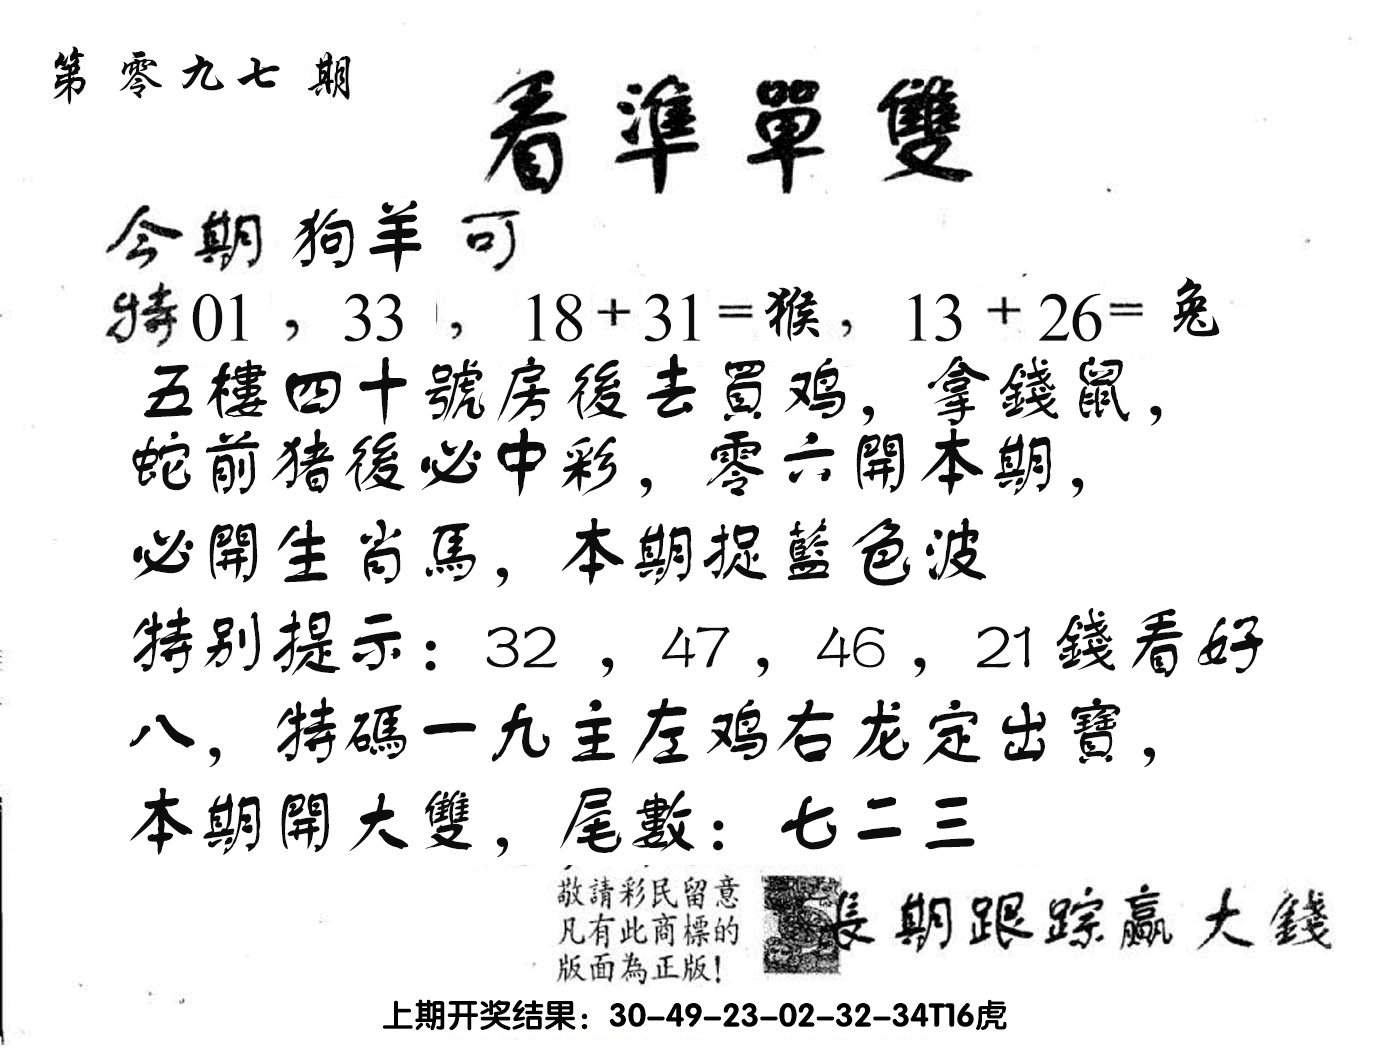 第零九七期
看準單雙
今期狗羊可
特01，33，18+31=猴，13+26=兔
五樓四十號房後去買鸡，拿錢鼠，
蛇前猪後必中彩，零六開本期，
必開生肖馬，本期捉藍色波
特别提示：32，47，46，21錢看好
八，特碼一九主左鸡右龙定出寶，
本期開大雙，尾數：七二三
敬請彩民留意
凡有此商標的
版面為正版！
長期跟踪赢大錢
上期开奖结果：30-49-23-02-32-34T16虎